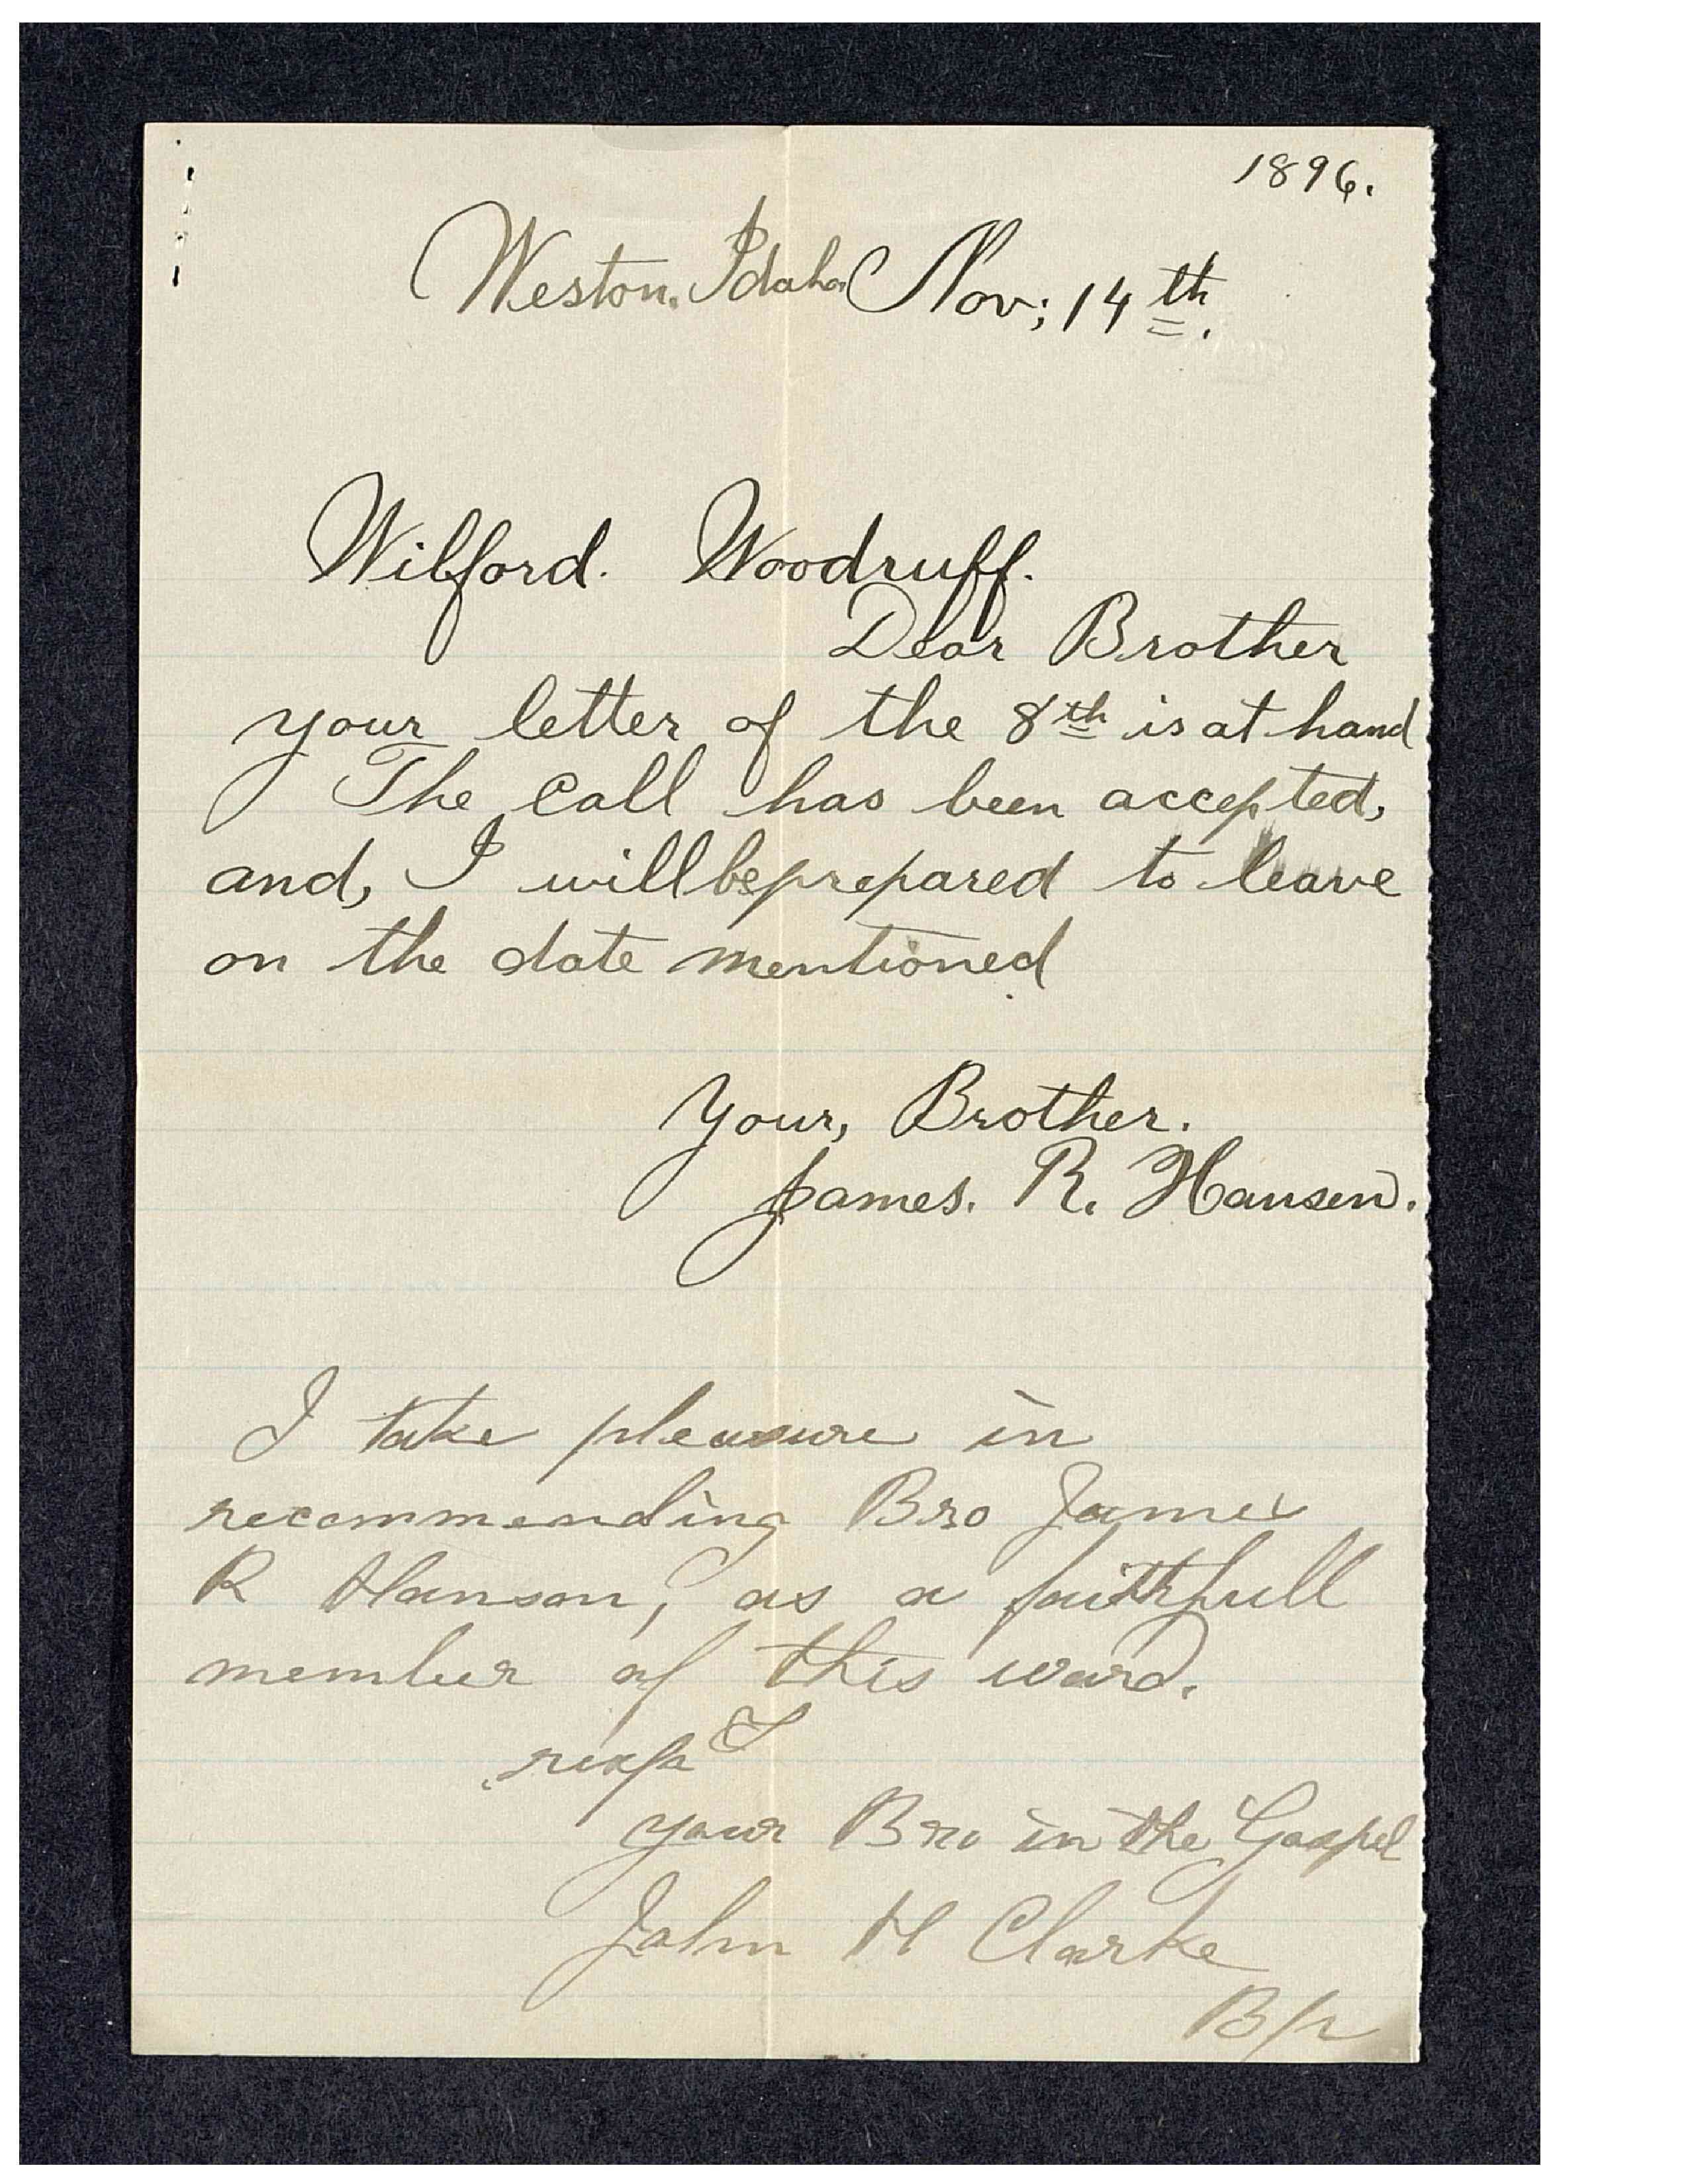 1896.
Weston. Idaho Nov; 14th.
Wilford. Woodruff.
Dear Brother
your letter of the 8th is at hand
The call has been accepted,
and, I will be prepared to leave
on the date mentioned
Your, Brother.
James. R. Hansen.
I take pleasure in
recommending Bro James
R Hanson, as a faithfull
member of this ward.
your Bro in the Gospel
John H Clarke
Bp